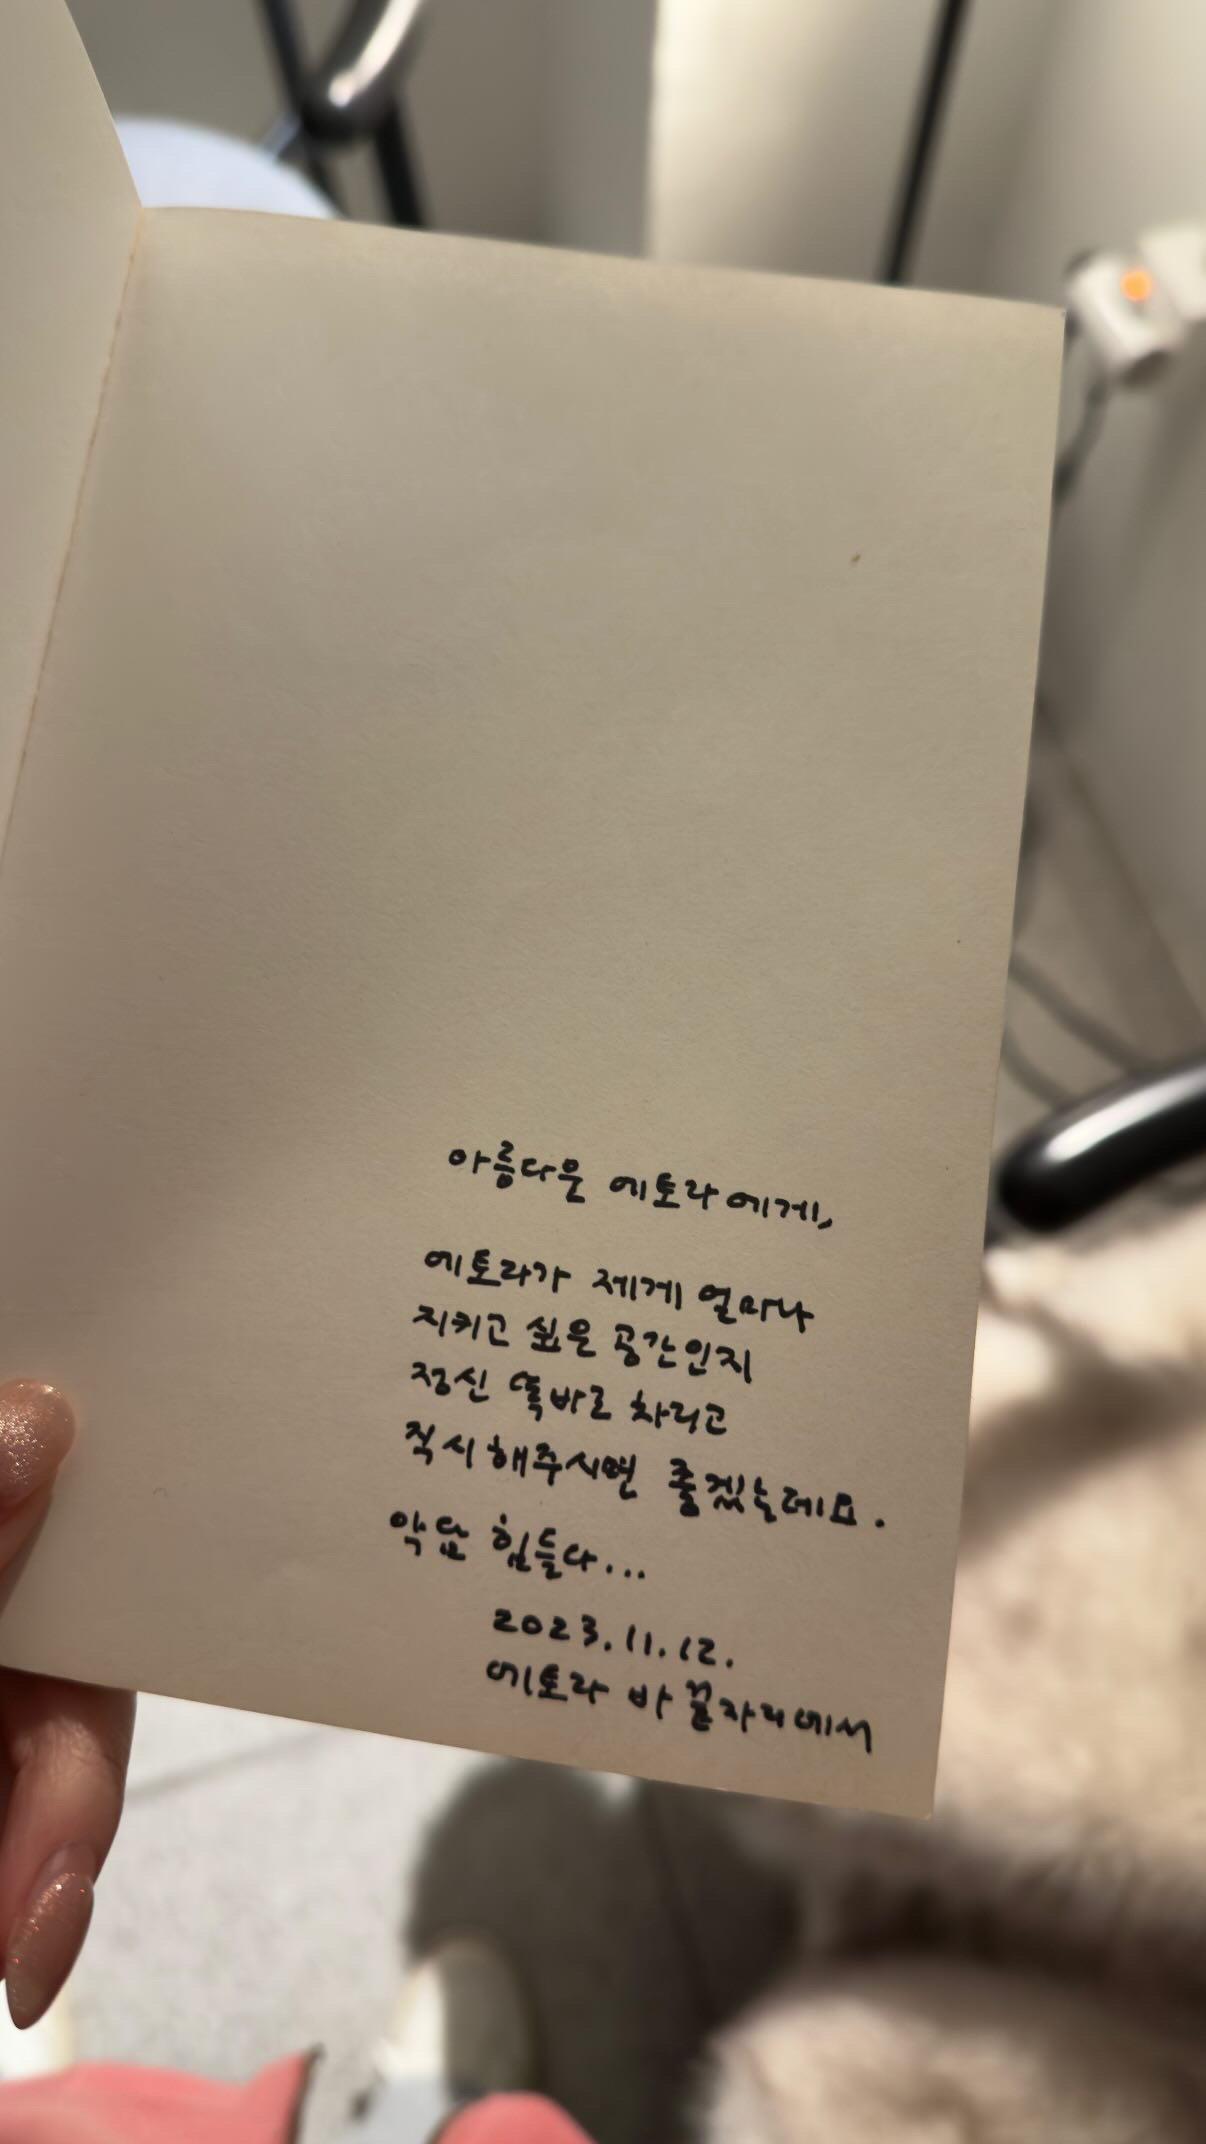 아름다운 에토라에게,
에토라가 제게 얼마나
지키고 싶은 공간인지
정신 똑바로 차리고
직시해주시면 좋겠는데요.
악담 힘들다...
2023.11.12.
에토라 바 끝자리에서